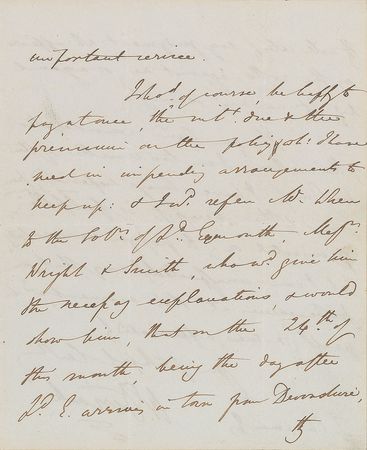 important service.
I shod. of course, be happy to
pay at once, the intt. due & the
premium on the policy which I have
need in impending arrangements to
keep up: & I wd. refer Mr.
to the Solrs. of Ld. Exmouth, Messrs.
Wright & Smith, who wd. give him
the necessy explanations, & would
show him, that on the 24th of
this month, being the day after
Ld. E. arrives in town from Devonshire,